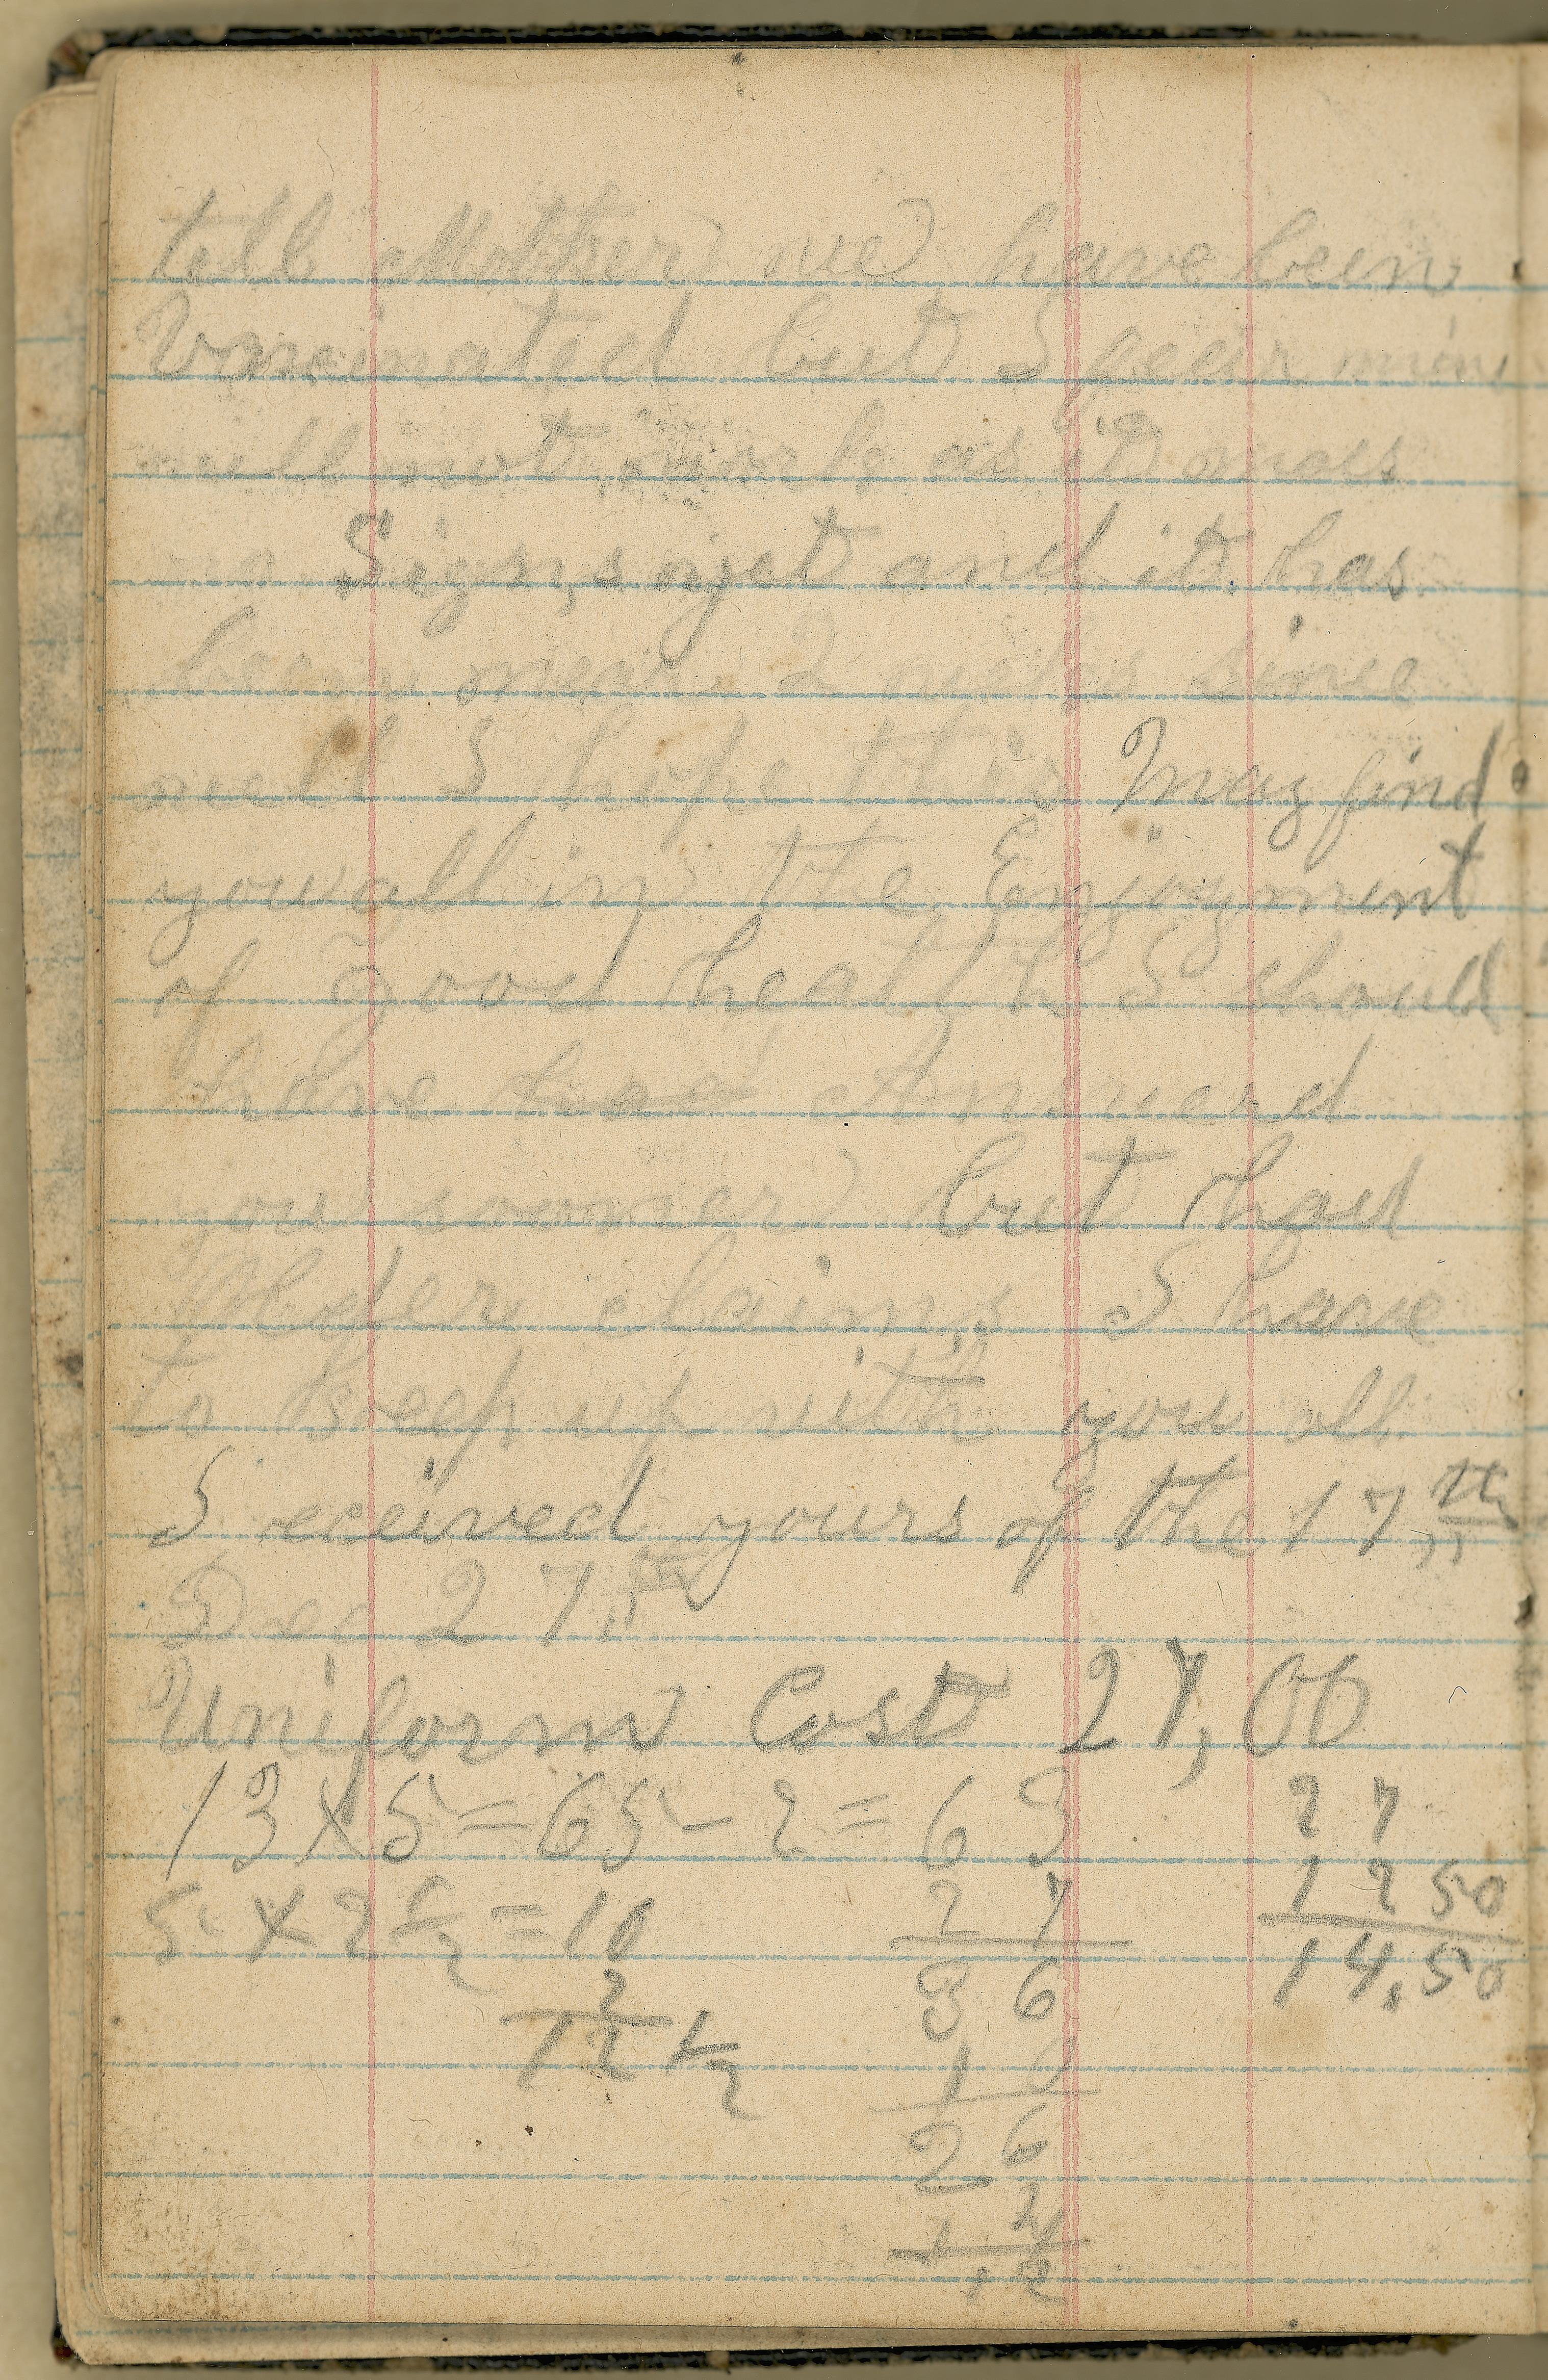 tell Mother we have been
Vaxcinated but I fear mine
will not work as it
no Signs yet and it has
been over 2 since
well I hope this May find
you all in the Enjoyment
of good health I should
have had Answerd
you sooner but had
Older claims I have
to Keep up with you all
I eceived yours of the 17th
Dec 27th
Uniform Cost 27,00
13 x 5 = 65 - 2 = 63 27
5 x 2 1/2 = 10 27 12 50
2 36 14.50
12 1/2 10
26
2